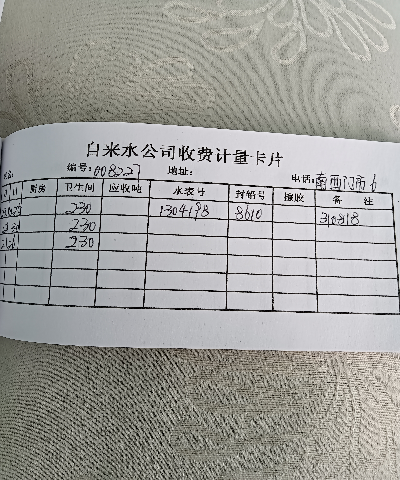 自来水公司收费计量卡片
编号:008227 地址: 电话:南西门市6
厨房 卫生间 应收吨 水表号 封铅号 接收 备注
230 1304198 8610 210818
230
230